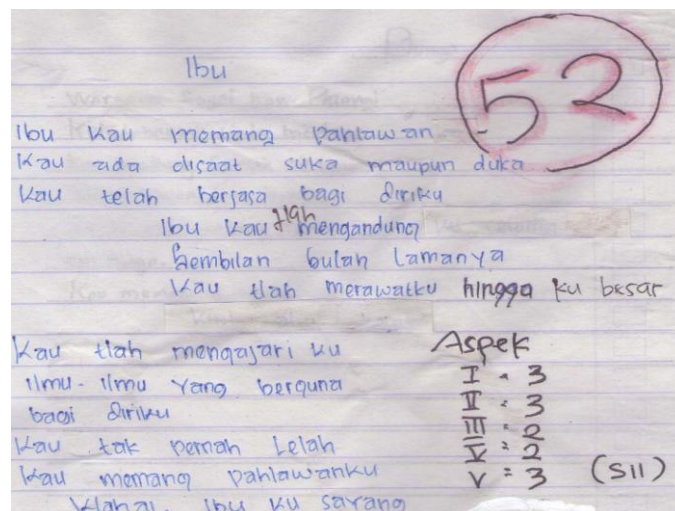 Ibu
52
Ibu Kau memang pahlawan
Kau ada disaat suka maupun duka
Kau telah berjasa bagi diriku
Ibu Kau tlah mengandung
Sembilan bulan Lamanya
Kau tlah merawatku hingga ku besar
Kau tlah mengajari ku
ilmu-ilmu yang berguna
bagi diriku
Kau tak pernah Lelah
Kau memang pahlawanku
Wahai Ibu ku sayang
Aspek
I = 3
II = 3
III = 2
IV = 2
V = 3 (S11)